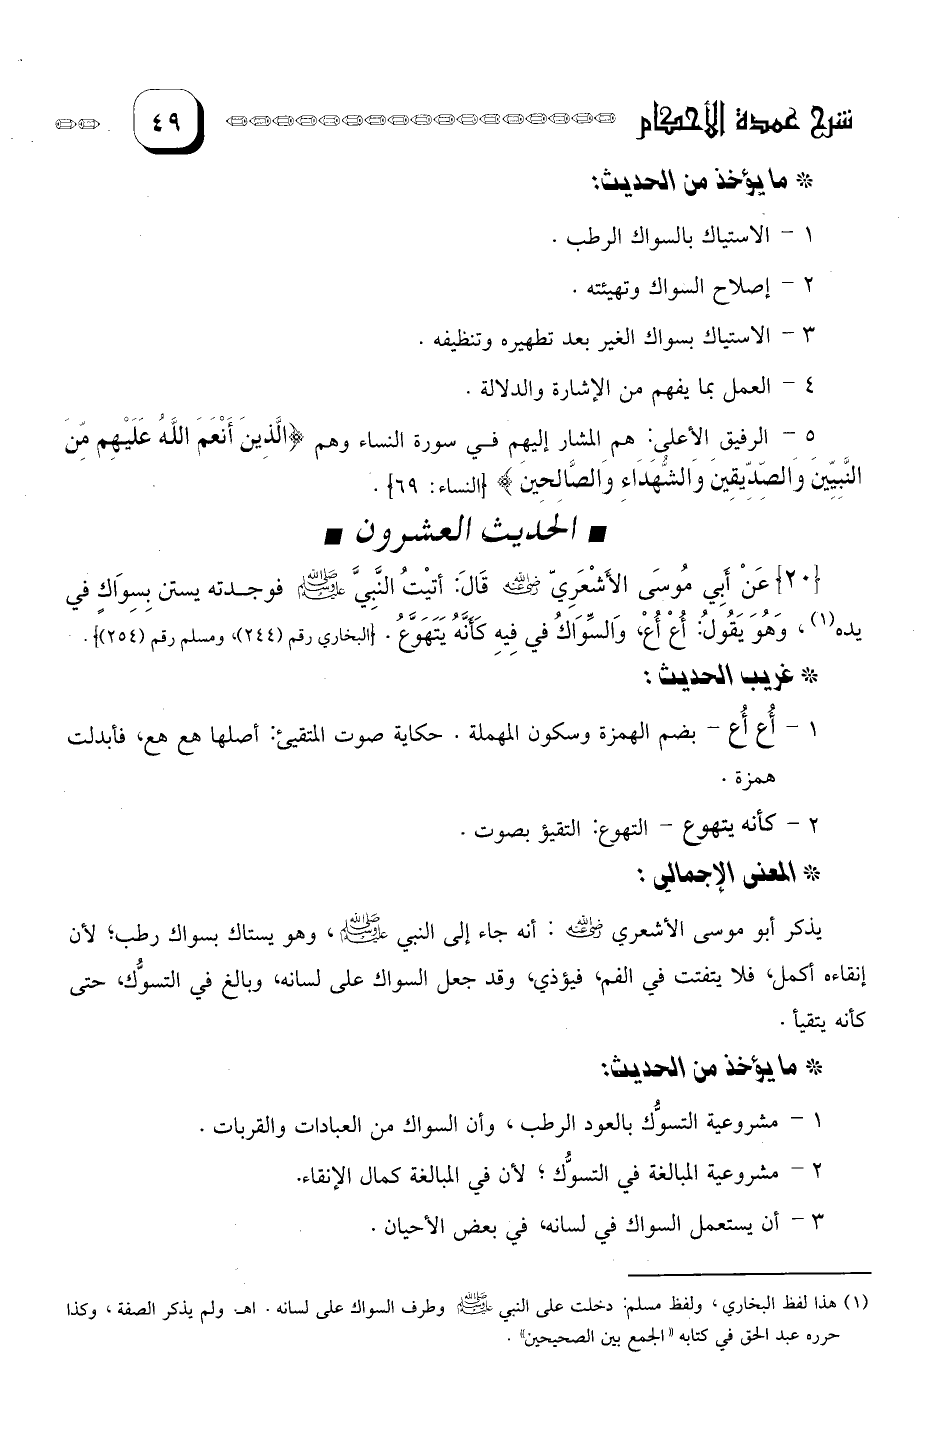 شرح عمدة الأحكام ٤٩
* ما يؤخذ من الحديث:
١ - الاستياك بالسواك الرطب .
٢ - إصلاح السواك وتهيئته .
٣ - الاستياك بسواك الغير بعد تطهيره وتنظيفه .
٤ - العمل بما يفهم من الإشارة والدلالة .
٥ - الرفيق الأعلى: هم المشار إليهم في سورة النساء وهم ﴿الَّذِينَ أَنْعَمَ اللَّهُ عَلَيْهِم مِّنَ
النَّبِيِّينَ وَالصِّدِّيقِينَ وَالشُّهَدَاءِ وَالصَّالِحِينَ﴾ {النساء: ٦٩} .
■ الحديث العشرون ■
{٢٠} عَنْ أَبِي مُوسَى الأَشْعَرِيِّ رضي الله عنه قَالَ: أتيْتُ النَّبِيَّ ﷺ فوجدته يستن بِسِوَاكٍ في
يده(١)، وَهُوَ يَقُولُ: أُعْ أُعْ، وَالسِّوَاكُ في فِيهِ كَأَنَّهُ يَتَهَوَّعُ . {البخاري رقم (٢٤٤)، ومسلم رقم (٢٥٤)} .
* غريب الحديث :
١ - أُع أُع - بضم الهمزة وسكون المهملة . حكاية صوت المتقيئ: أصلها هع هع، فأبدلت
همزة .
٢ - كأنه يتهوع - التهوع: التقيؤ بصوت .
* المعنى الإجمالي :
يذكر أبو موسى الأشعري رضي الله عنه : أنه جاء إلى النبي ﷺ ، وهو يستاك بسواك رطب؛ لأن
إنقاءه أكمل، فلا يتفتت في الفم، فيؤذي، وقد جعل السواك على لسانه، وبالغ في التسوُّك، حتى
كأنه يتقيأ .
* ما يؤخذ من الحديث:
١ - مشروعية التسوُّك بالعود الرطب ، وأن السواك من العبادات والقربات .
٢ - مشروعية المبالغة في التسوُّك ؛ لأن في المبالغة كمال الإنقاء.
٣ - أن يستعمل السواك في لسانه، في بعض الأحيان .
(١) هذا لفظ البخاري ، ولفظ مسلم: دخلت على النبي ﷺ وطرف السواك على لسانه . اهـ ولم يذكر الصفة ، وكذا
حرره عبد الحق في كتابه «الجمع بين الصحيحين» .